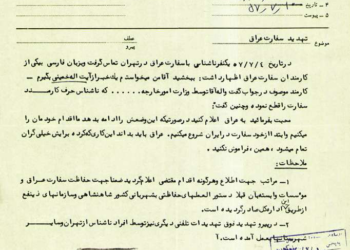 ۳- تاریخ
۵- پیوست
موضوع تهدید سفارت عراق
پیرو
در تاریخ ۵۷/۷/۴ یکنفر ناشناس با سفارت عراق در تهران تماس گرفت و بزبان فارسی بیکی از
کارمندان سفارت عراق اظهار داشته: ببخشید آقا من میخواستم یک خبر از آیت اله خمینی بگیرم -
کارمند موصوف در جواب گفت والله آقا توسط وزارت امور خارجه..... که ناشناس حرف کارمند
سفارت را قطع نموده و چنین گفت:
محبت بفرمائید به عراق اعلام کنید در صورتیکه این وضعی را ادامه بدهد ما اقدام خودمان را
میکنیم و ابتدا از خود سفارت در ایران شروع میکنیم. عراق باید بداند این کاری که کرده برایش خیلی گران
تمام میشود، همین، فراموش نکنید.
ملاحظات:
۱- مراتب جهت اطلاع و هرگونه اقدام مقتضی اعلام گردید ضمنا جهت حفاظت سفارت عراق و
موسسات وابسته بآن قبلا دستورالعملهای حفاظتی بشهربانی کشور شاهنشاهی و سازمانهای ذینفع
از طریق این اداره کل صادر گردیده است.
۲- در پیرو تهدید فوق تهدیدات تلفنی دیگری نیز توسط افراد ناشناس از تهران و سایر
بعمل آمده است.